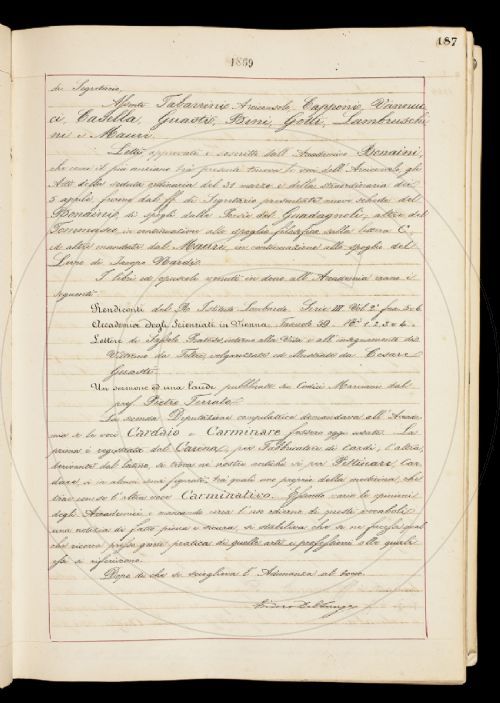 187
1869
di Segretario.
Assenti Tabarrini, Arciconsolo, Capponi, Vannuc-
ci, Casella, Guasti, Bini, Gotti, Lambruschi
ni e Mauri.
Letti, approvati e sottoscritti dall'Accademico Bonaini,
che come il più anziano tra i presenti teneva le veci dell'Arciconsolo, gli
Atti della seduta ordinaria del 31 marzo e della straordinaria dei
5 aprile, furono dal ff. di Segretario presentate nuove schede del
Bonaini, di spogli dalle Poesie del Guadagnoli, altre del
Tommaseo in continuazione allo spoglio filosofico sulla lettera C,
ed altre mandate dal Mauri, in continuazione allo spoglio del
Livio di Jacopo Nardi.
I libri ed opuscoli venuti in dono all'Accademia erano i
seguenti
Rendiconti del R.º Istituto Lombardo. Serie III Vol. 2º fasc. 5-6
Accademia degli Scienziati in Vienna. Fascicoli 59. Nº 1, 2, 3 e 4.
Lettere di Sabba intorno alla Vita e all'insegnamento di
Vittorino da Feltre volgarizzate ed illustrate da Cesare
Guasti.
Un sermone ed una laude pubblicate su Codici Marciani dal
prof. Pietro Ferrato.
La seconda Deputazione compilatrice domandava all'Accade-
mia se le voci Cardaio e Carminare fossero oggi usate. La
prima è registrata dal Carena, per Fabbricatore di Cardi, l'altra,
derivante dal latino, si trova ne' nostri antichi sì per Pettinare, Car
dare, sì in alcuni sensi figurati, tra' quali uno proprio della medicina, che
trae con se l'altra voce Carminativo. Essendo varie le opinioni
degli Accademici e mancando circa l'uso odierno di questi vocaboli
una notizia di fatto piena e sicura, si stabiliva che se ne facesse qual
che ricerca presso gente pratica di quelle arti e professioni alle quali
essi si riferiscono.
Dopo di che si scioglieva l'Adunanza al tocco.
Isidoro Del Lungo